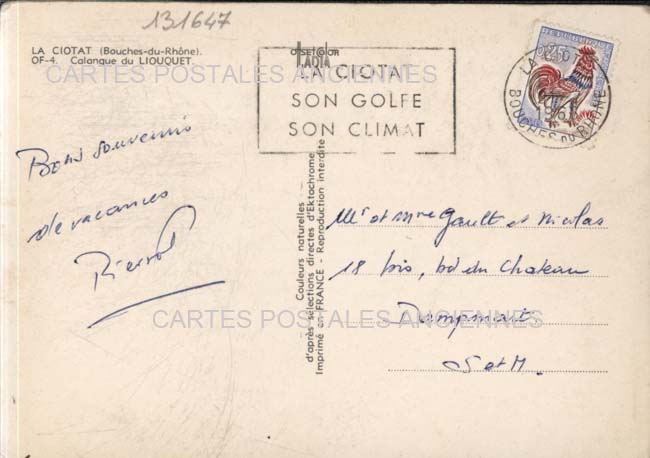 131647
LA CIOTAT (Bouches-du-Rhône).
OF-4. Calanque du LIOUQUET.
CARTES POSTALES ANCIENNES
OFFSET COLOR
LA CIOTAT
SON GOLFE
SON CLIMAT
LA CIOTAT
BOUCHES DU RHONE
0,25
Bons souvenirs
de vacances
Pierrot
Couleurs naturelles
d'après sélections directes d'Ektachrome
Imprimé en FRANCE - Reproduction interdite
Mr et Mme Gault et Nicolas
18 bis, bd du Chateau
Dampmart
S et M.
CARTES POSTALES ANCIENNES